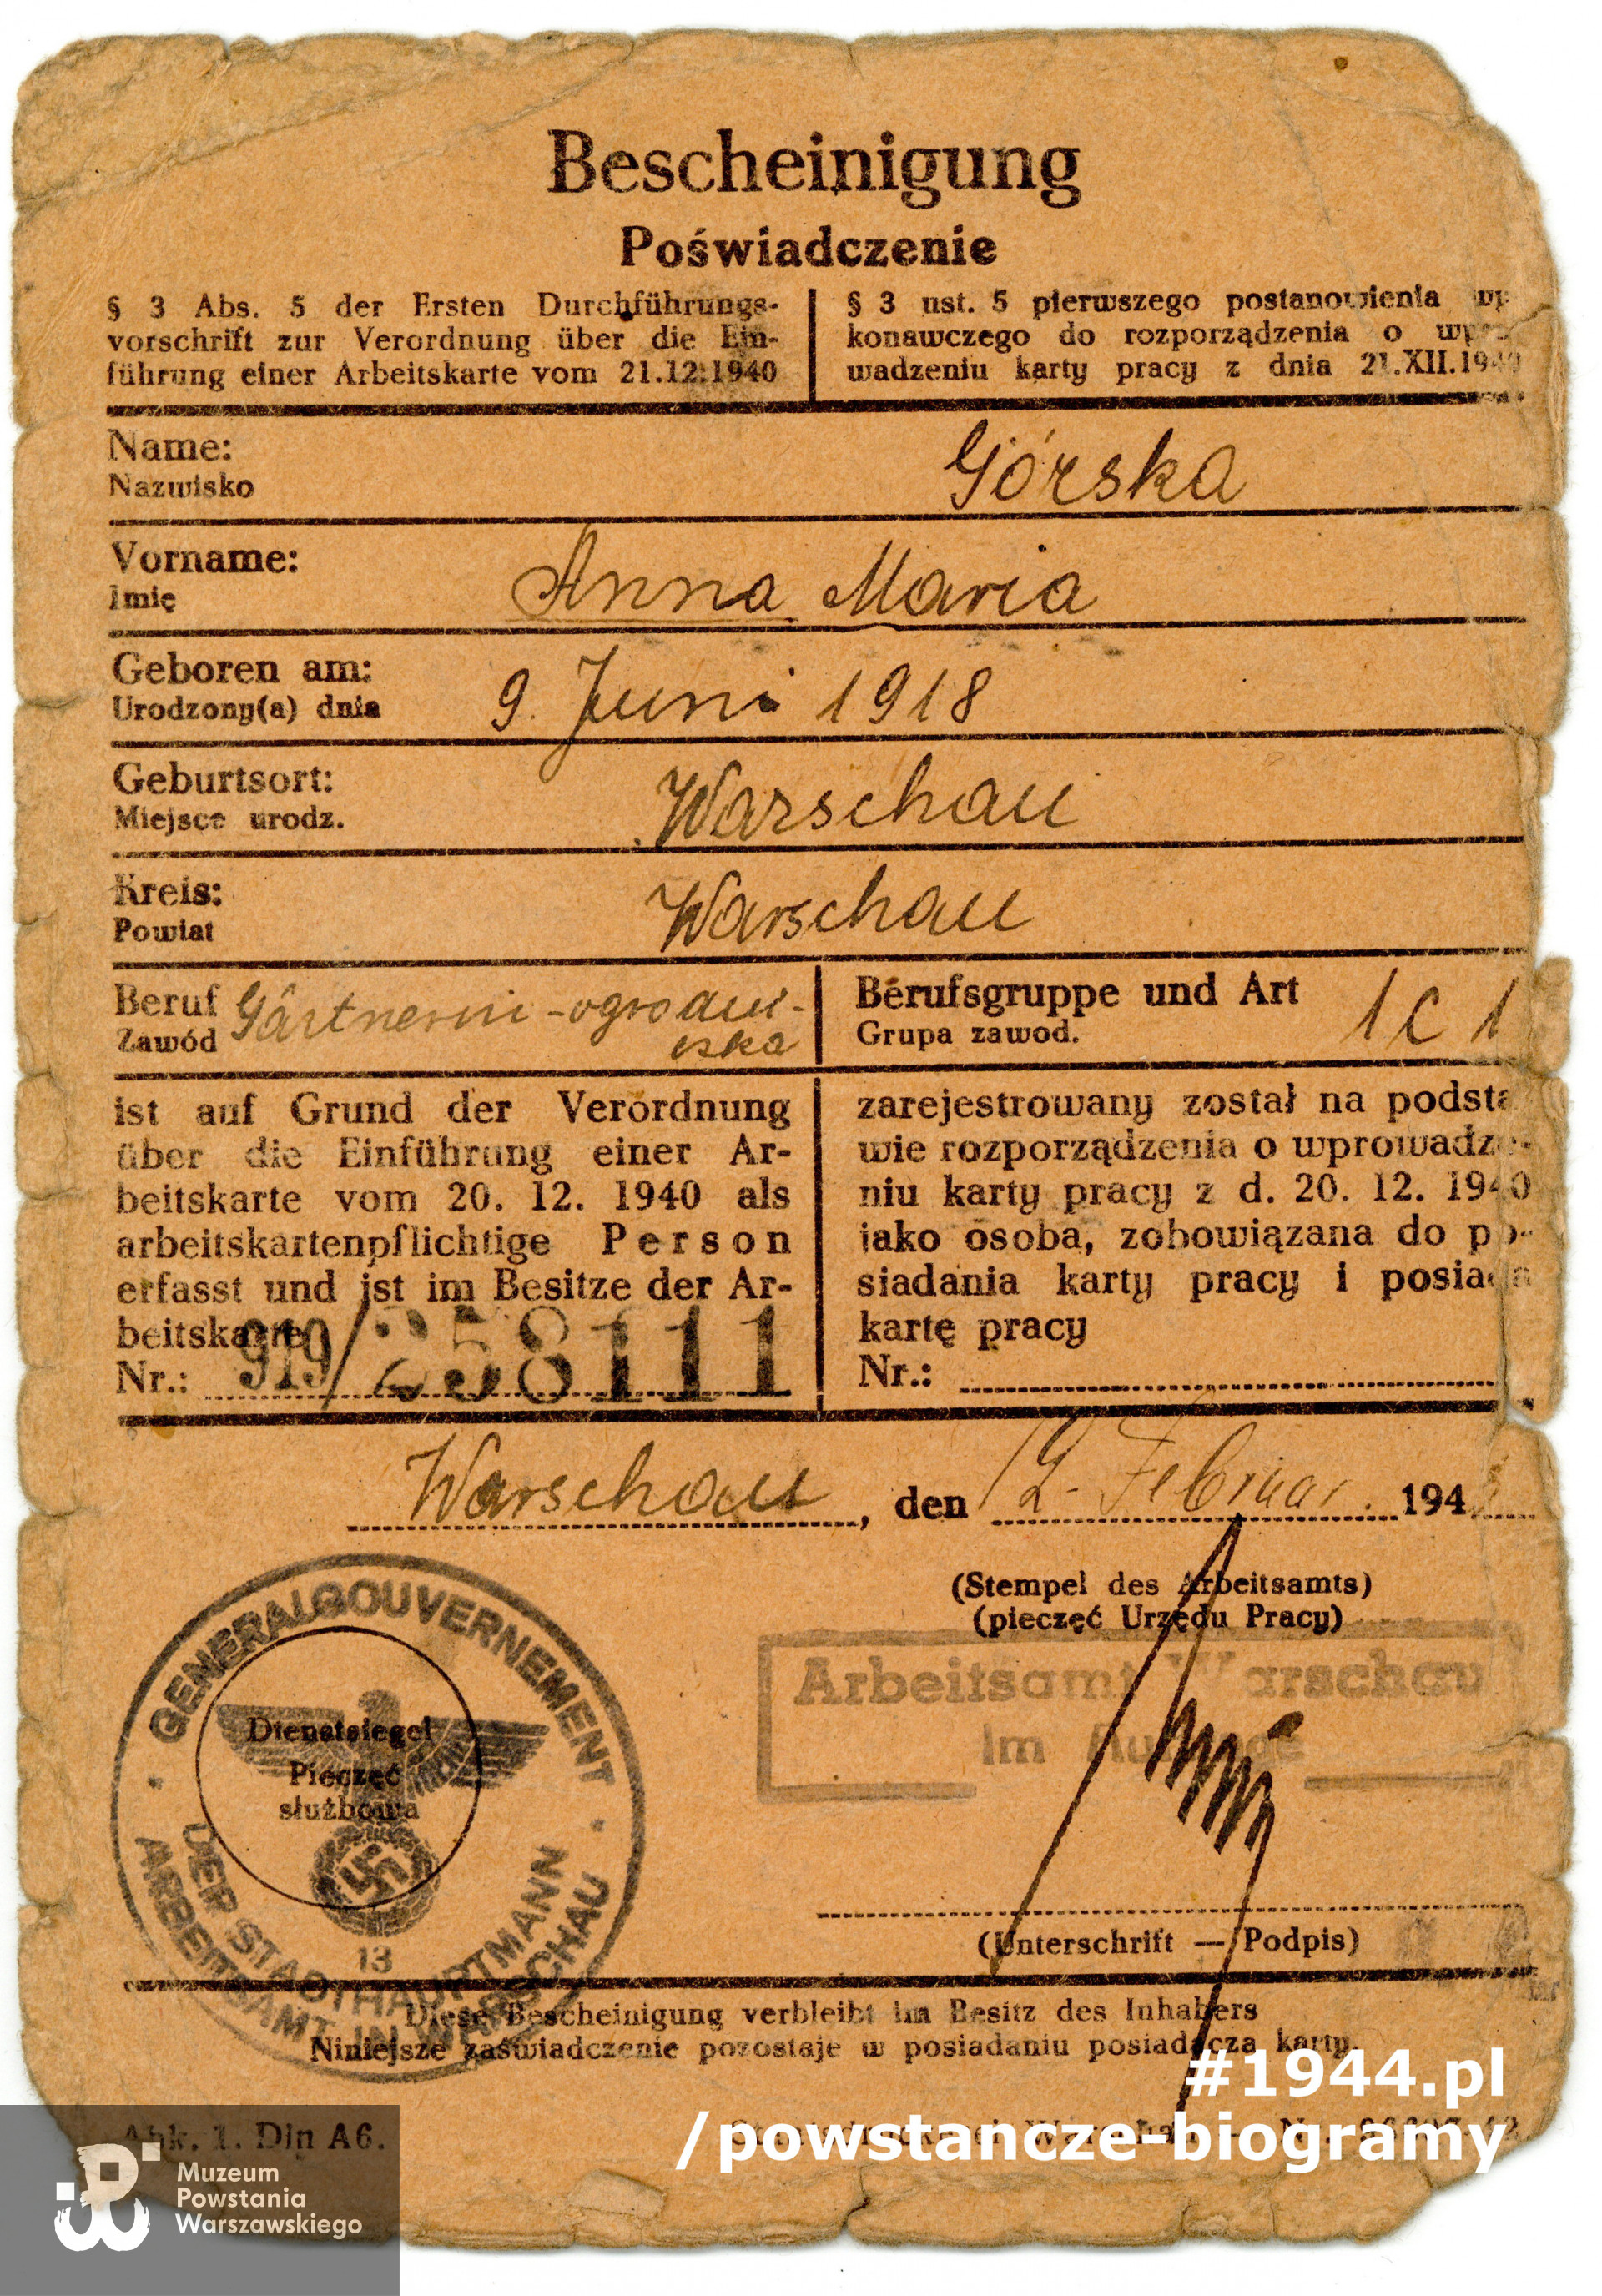 Bescheinigung
Poświadczenie
§ 3 Abs. 5 der Ersten Durchführungs-
vorschrift zur Verordnung über die Ein-
führung einer Arbeitskarte vom 21.12.1940
§ 3 ust. 5 pierwszego postanowienia wy
konawczego do rozporządzenia o wpro
wadzeniu karty pracy z dnia 21.XII.1940
Name: Górska
Nazwisko
Vorname: Anna Maria
Imię
Geboren am: 9. Juni 1918
Urodzony(a) dnia
Geburtsort: Warschau
Miejsce urodz.
Kreis: Warschau
Powiat
Beruf Gärtnerin - ogrodni-
Zawód czka
Berufsgruppe und Art 1 C 1
Grupa zawod.
ist auf Grund der Verordnung
über die Einführung einer Ar-
beitskarte vom 20. 12. 1940 als
arbeitskartenpflichtige Person
erfasst und ist im Besitze der Ar-
beitskarte
Nr.: 919/258111
zarejestrowany został na podsta
wie rozporządzenia o wprowadze-
niu karty pracy z d. 20. 12. 1940
jako osoba, zobowiązana do po-
siadania karty pracy i posiada
kartę pracy
Nr.:
Warschau, den 12. Februar 194
(Stempel des Arbeitsamts)
(pieczęć Urzędu Pracy)
Arbeitsamt Warschau
Im Auftrage
GENERALGOUVERNEMENT
Dienstsiegel
Pieczęć
służbowa
DER STADTHAUPTMANN
ARBEITSAMT IN WARSCHAU
13
(Unterschrift — Podpis)
Diese Bescheinigung verbleibt im Besitz des Inhabers
Niniejsze zaświadczenie pozostaje w posiadaniu posiadacza karty.
#1944.pl
/powstancze-biogramy
Abk. 1. Din A6.
Muzeum
Powstania
Warszawskiego